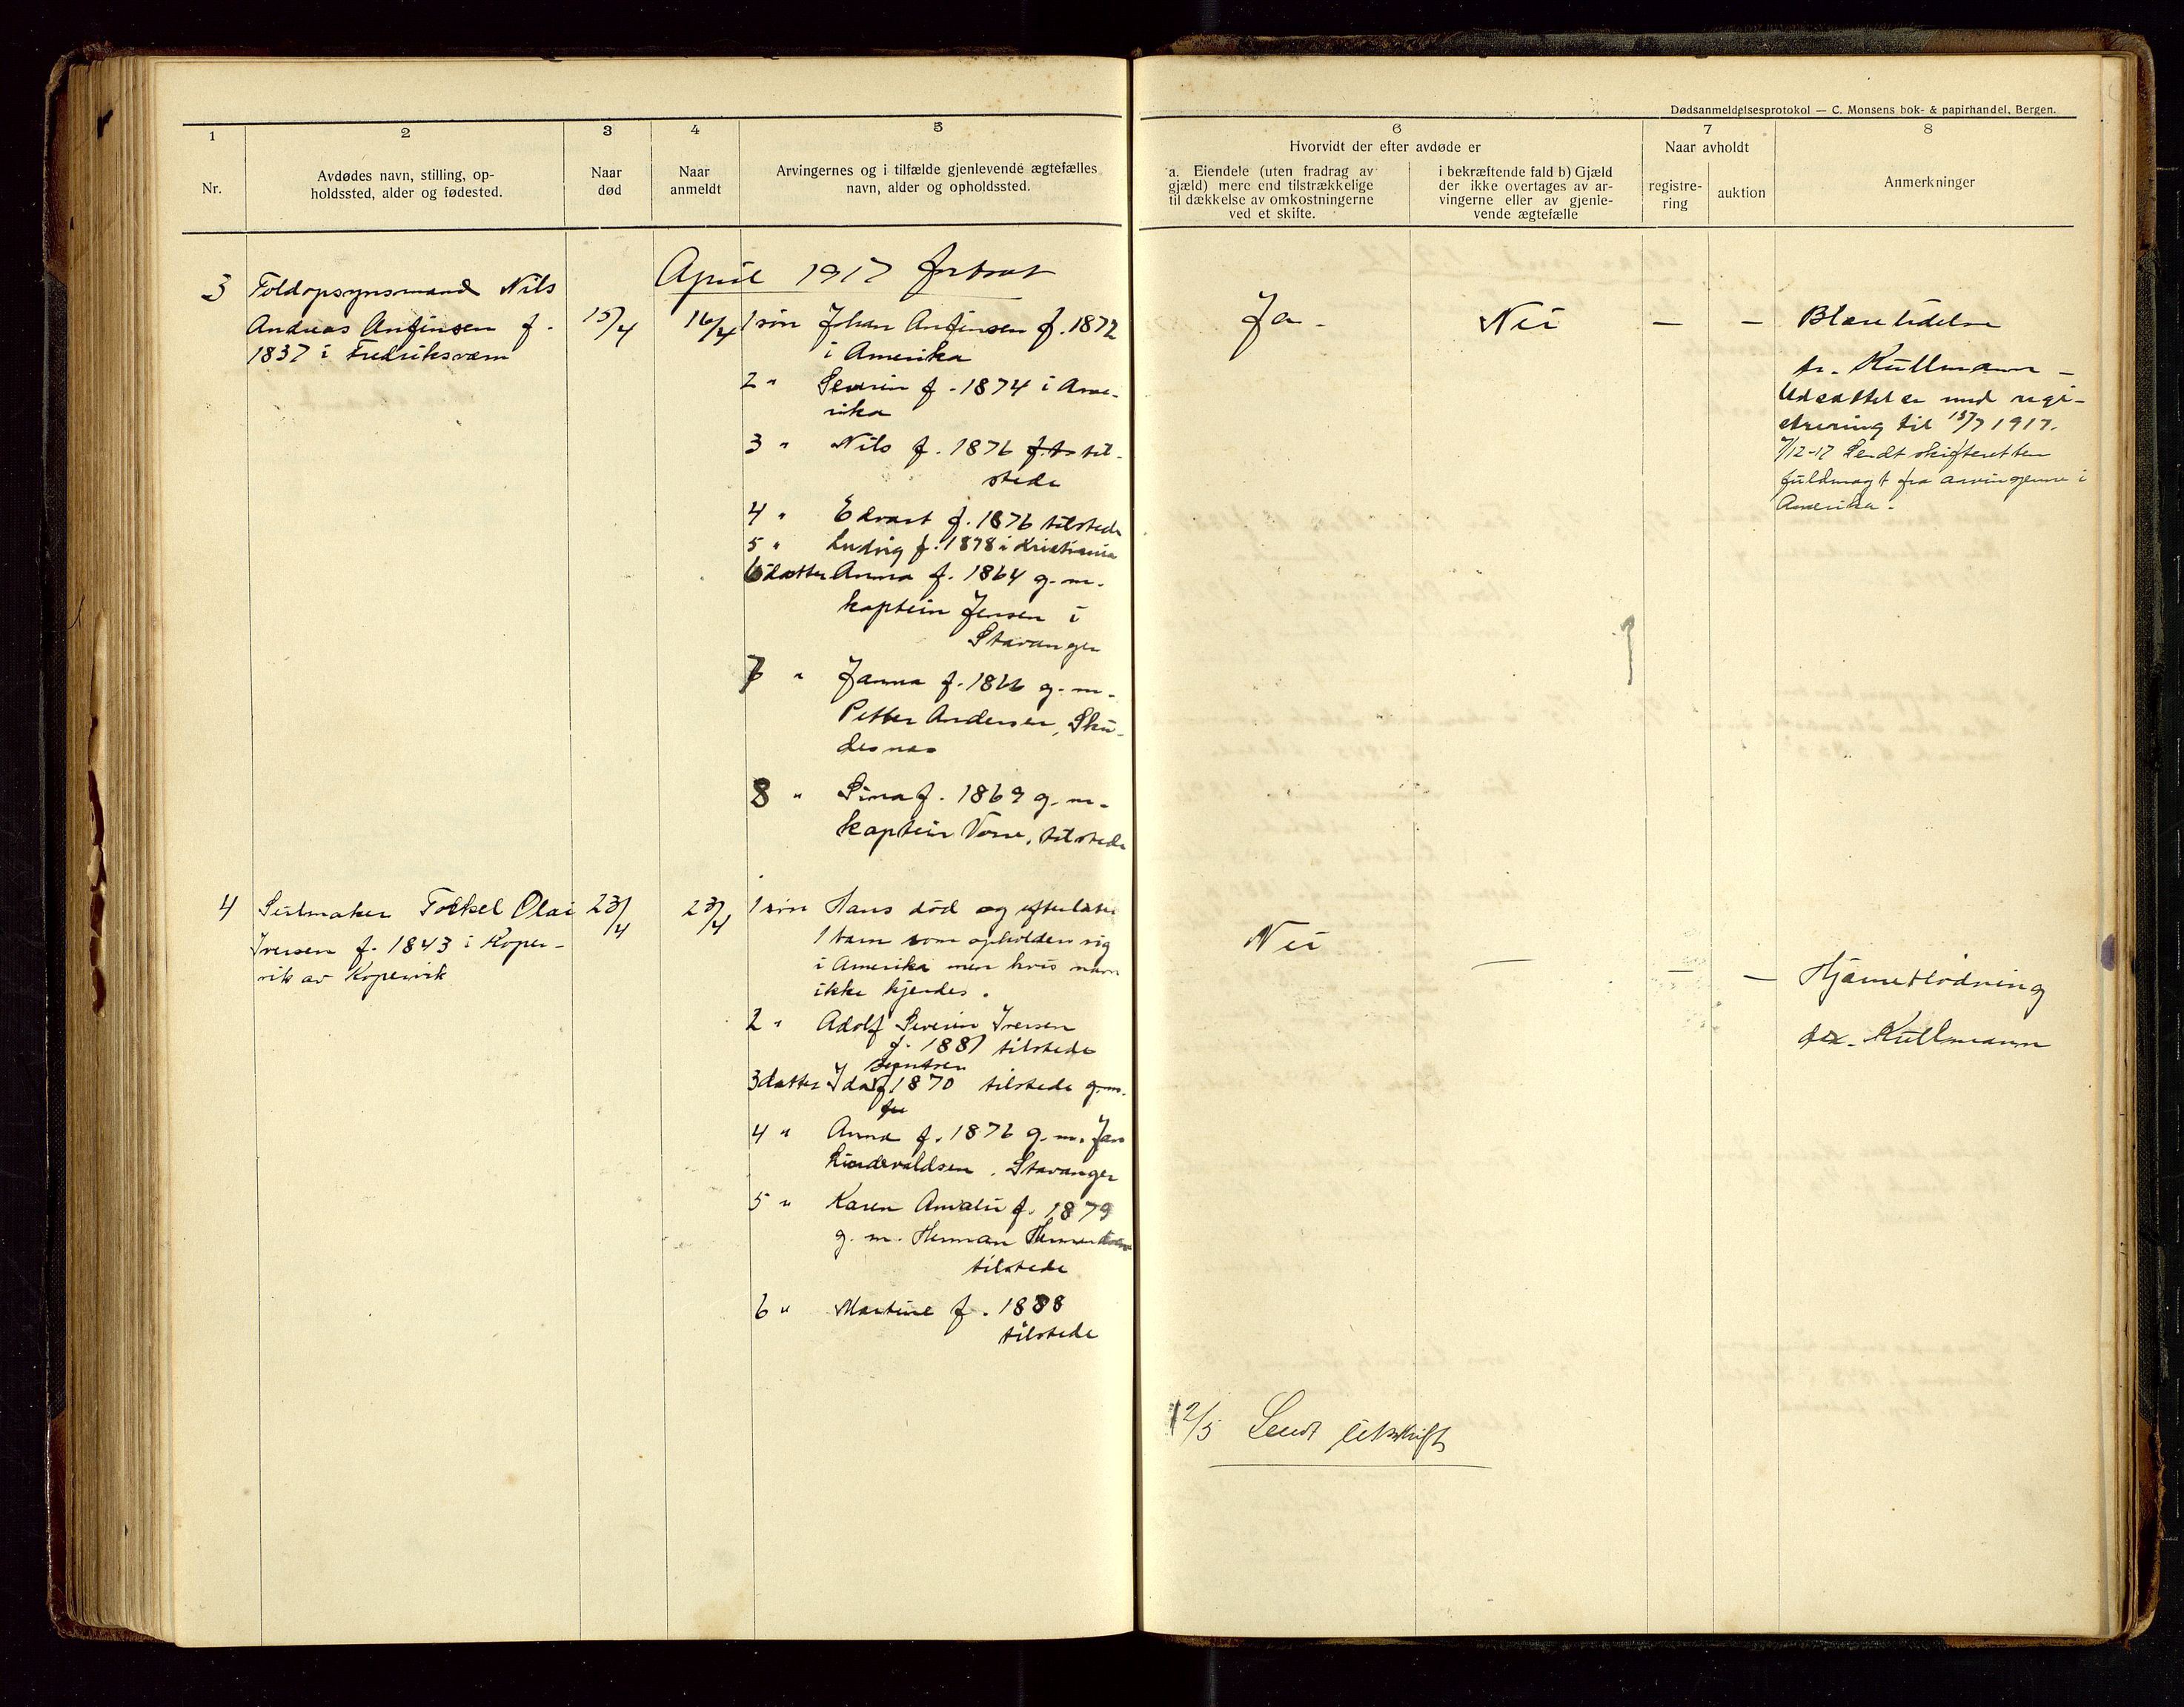 Dødsanmeldelsesprotokol — C. Monsens bok- & papirhandel, Bergen.
1 2 3 4 5
Nr.
Avdødes navn, stilling, op-
holdssted, alder og fødested.
Naar
død
Naar
anmeldt
Arvingernes og i tilfælde gjenlevende ægtefælles
navn, alder og opholdssted.
6 7 8
Hvorvidt der efter avdøde er
a. Eiendele (uten fradrag av
gjæld) mere end tilstrækkelige
til dækkelse av omkostningerne
ved et skifte.
i bekræftende fald b) Gjæld
der ikke overtages av ar-
vingerne eller av gjenle-
vende ægtefælle
Naar avholdt
registre-
ring
auktion
Anmerkninger
April 1917 fortsat
3 Toldopsynsmand Nils
Andreas Anfinsen f.
1837 i Fredriksværn
15/4
16/4
1 søn Johan Anfinsen f. 1872
i Amerika
2 " Severin f. 1874 i Ame-
rika
3 " Nils f. 1876 til-
stede
4 " Edvart f. 1876 tilstede
5 " Ludvig f. 1878 i Kristiania
6 datter Anna f. 1864 g. m.
kaptein Jensen i
Stavanger
7 " Janna f. 1866 g. m.
Petter Andersen, Sku-
desnes
8 " Sina f. 1869 g. m.
kaptein , tilstede
Ja.
Nei
— —
Blærelidelse
dr. Kullmann —
Utsættelse med regi-
strering til 15/7 1917.
7/12-17 Sendt skifteretten
fuldmagt fra arvingerne i
Amerika.
4 Seilmaker Torkel Olai
Iversen f. 1843 i Koper-
vik av Kopervik
23/4
23/4
1 søn Hans død og efterlater
1 barn som opholder sig
i Amerika men hvis navn
ikke kjendes.
2 " Adolf Severin Iversen
f. 1881 tilstede
3 datter Ida f. 1870 tilstede g. m.
4 " Anna f. 1876 g. m. Jan
Stavanger
5 " Karen Amalie f. 1879
g. m. Herman
tilstede
6 " Martine f. 1888
tilstede
Nei
— — —
Hjærneblødning
dr. Kullmann
12/5 Sendt utskrift